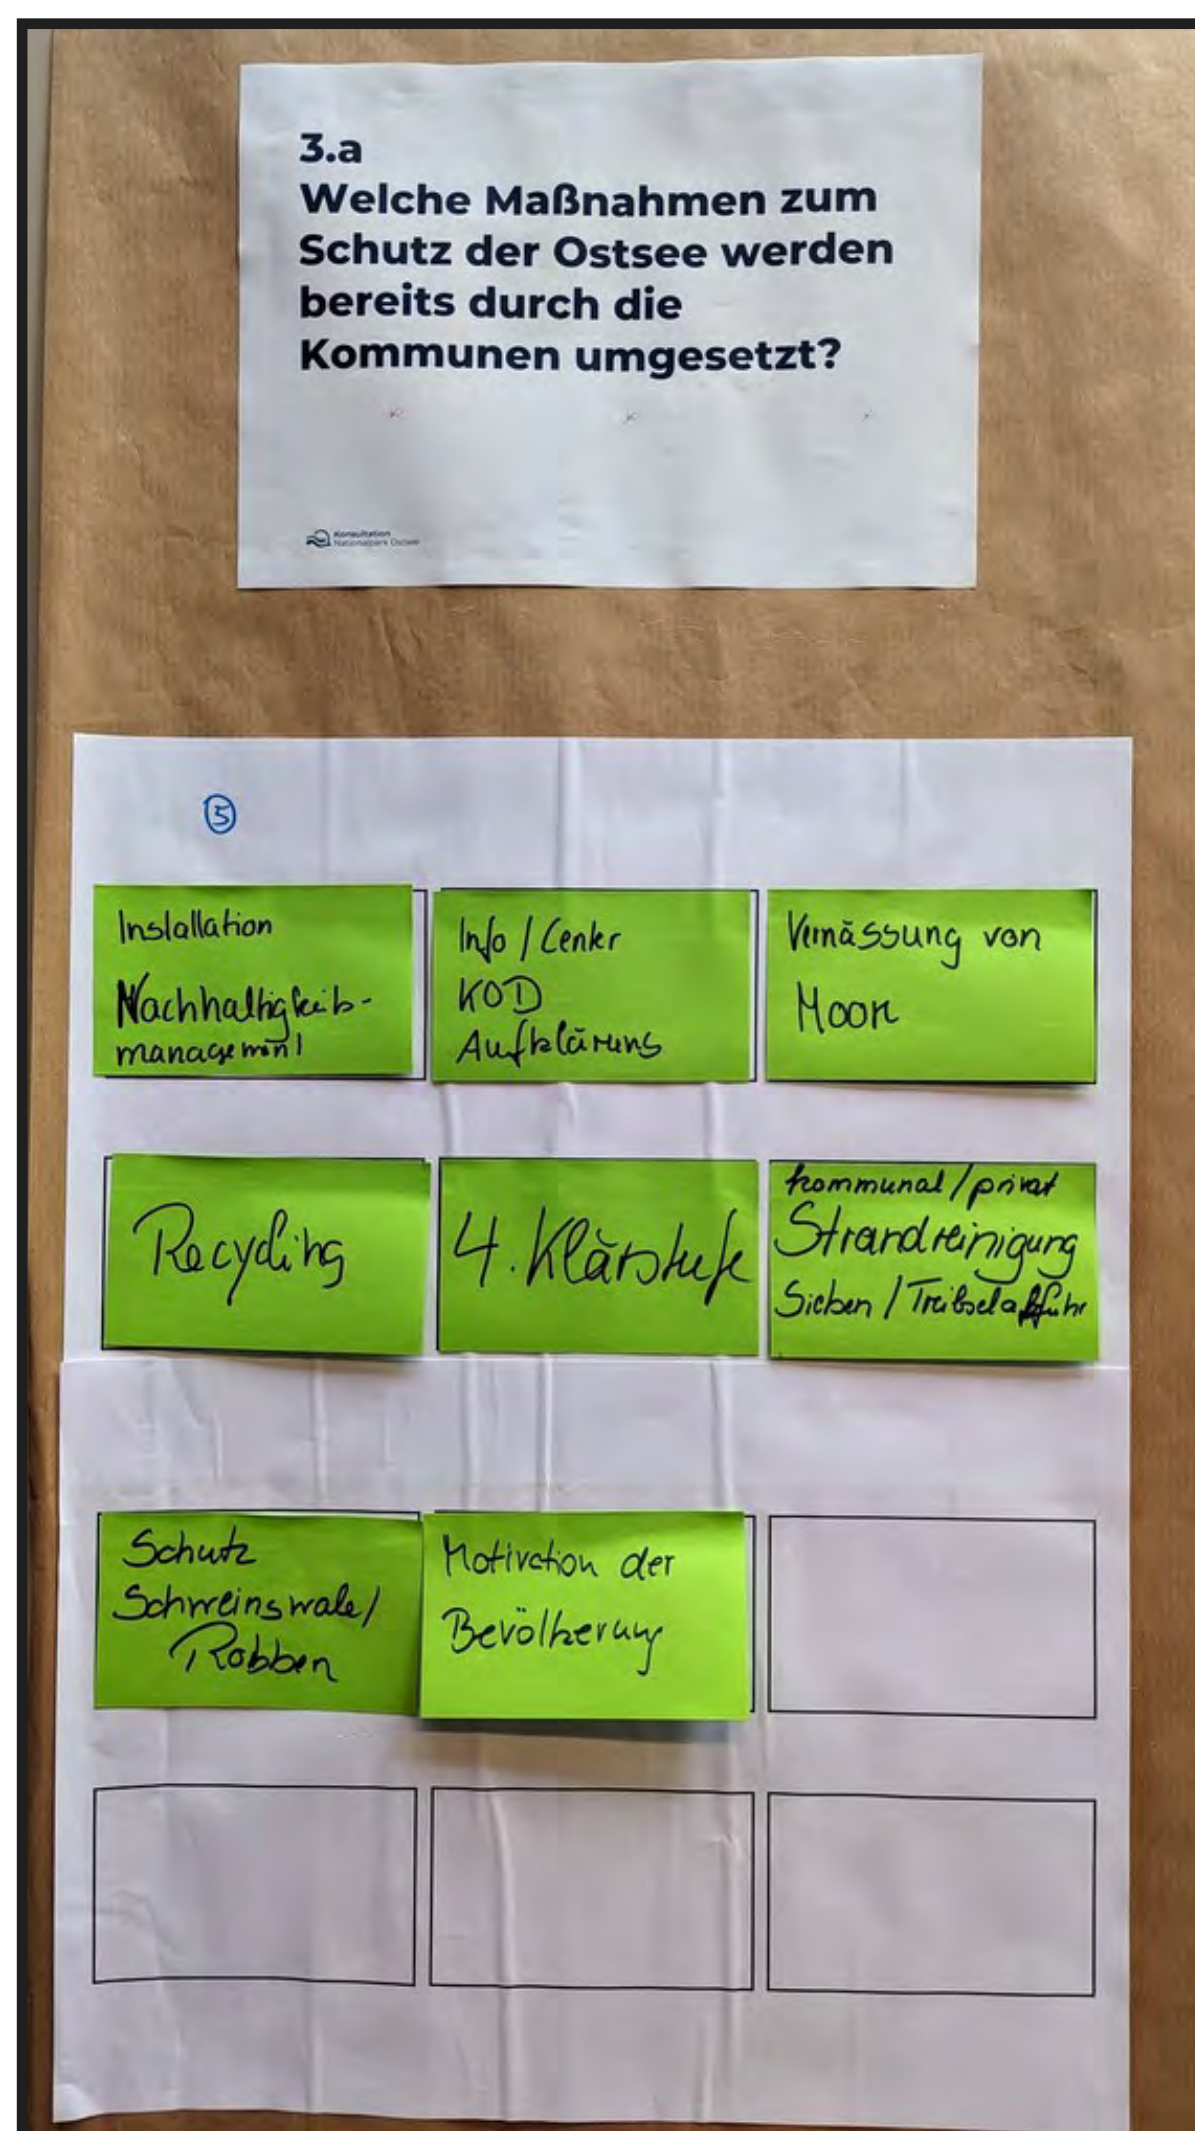 3.a
Welche Maßnahmen zum
Schutz der Ostsee werden
bereits durch die
Kommunen umgesetzt?
Konsultation
Nationalpark Ostsee
5
Installation
Nachhaltigkeits-
management
Info / Center
KOD
Aufklärung
Vernässung von
Mooren
Recycling
4. Klärstufe
kommunal / privat
Strandreinigung
Sieben / Treibselabfuhr
Schutz
Schweinswale /
Robben
Motivation der
Bevölkerung